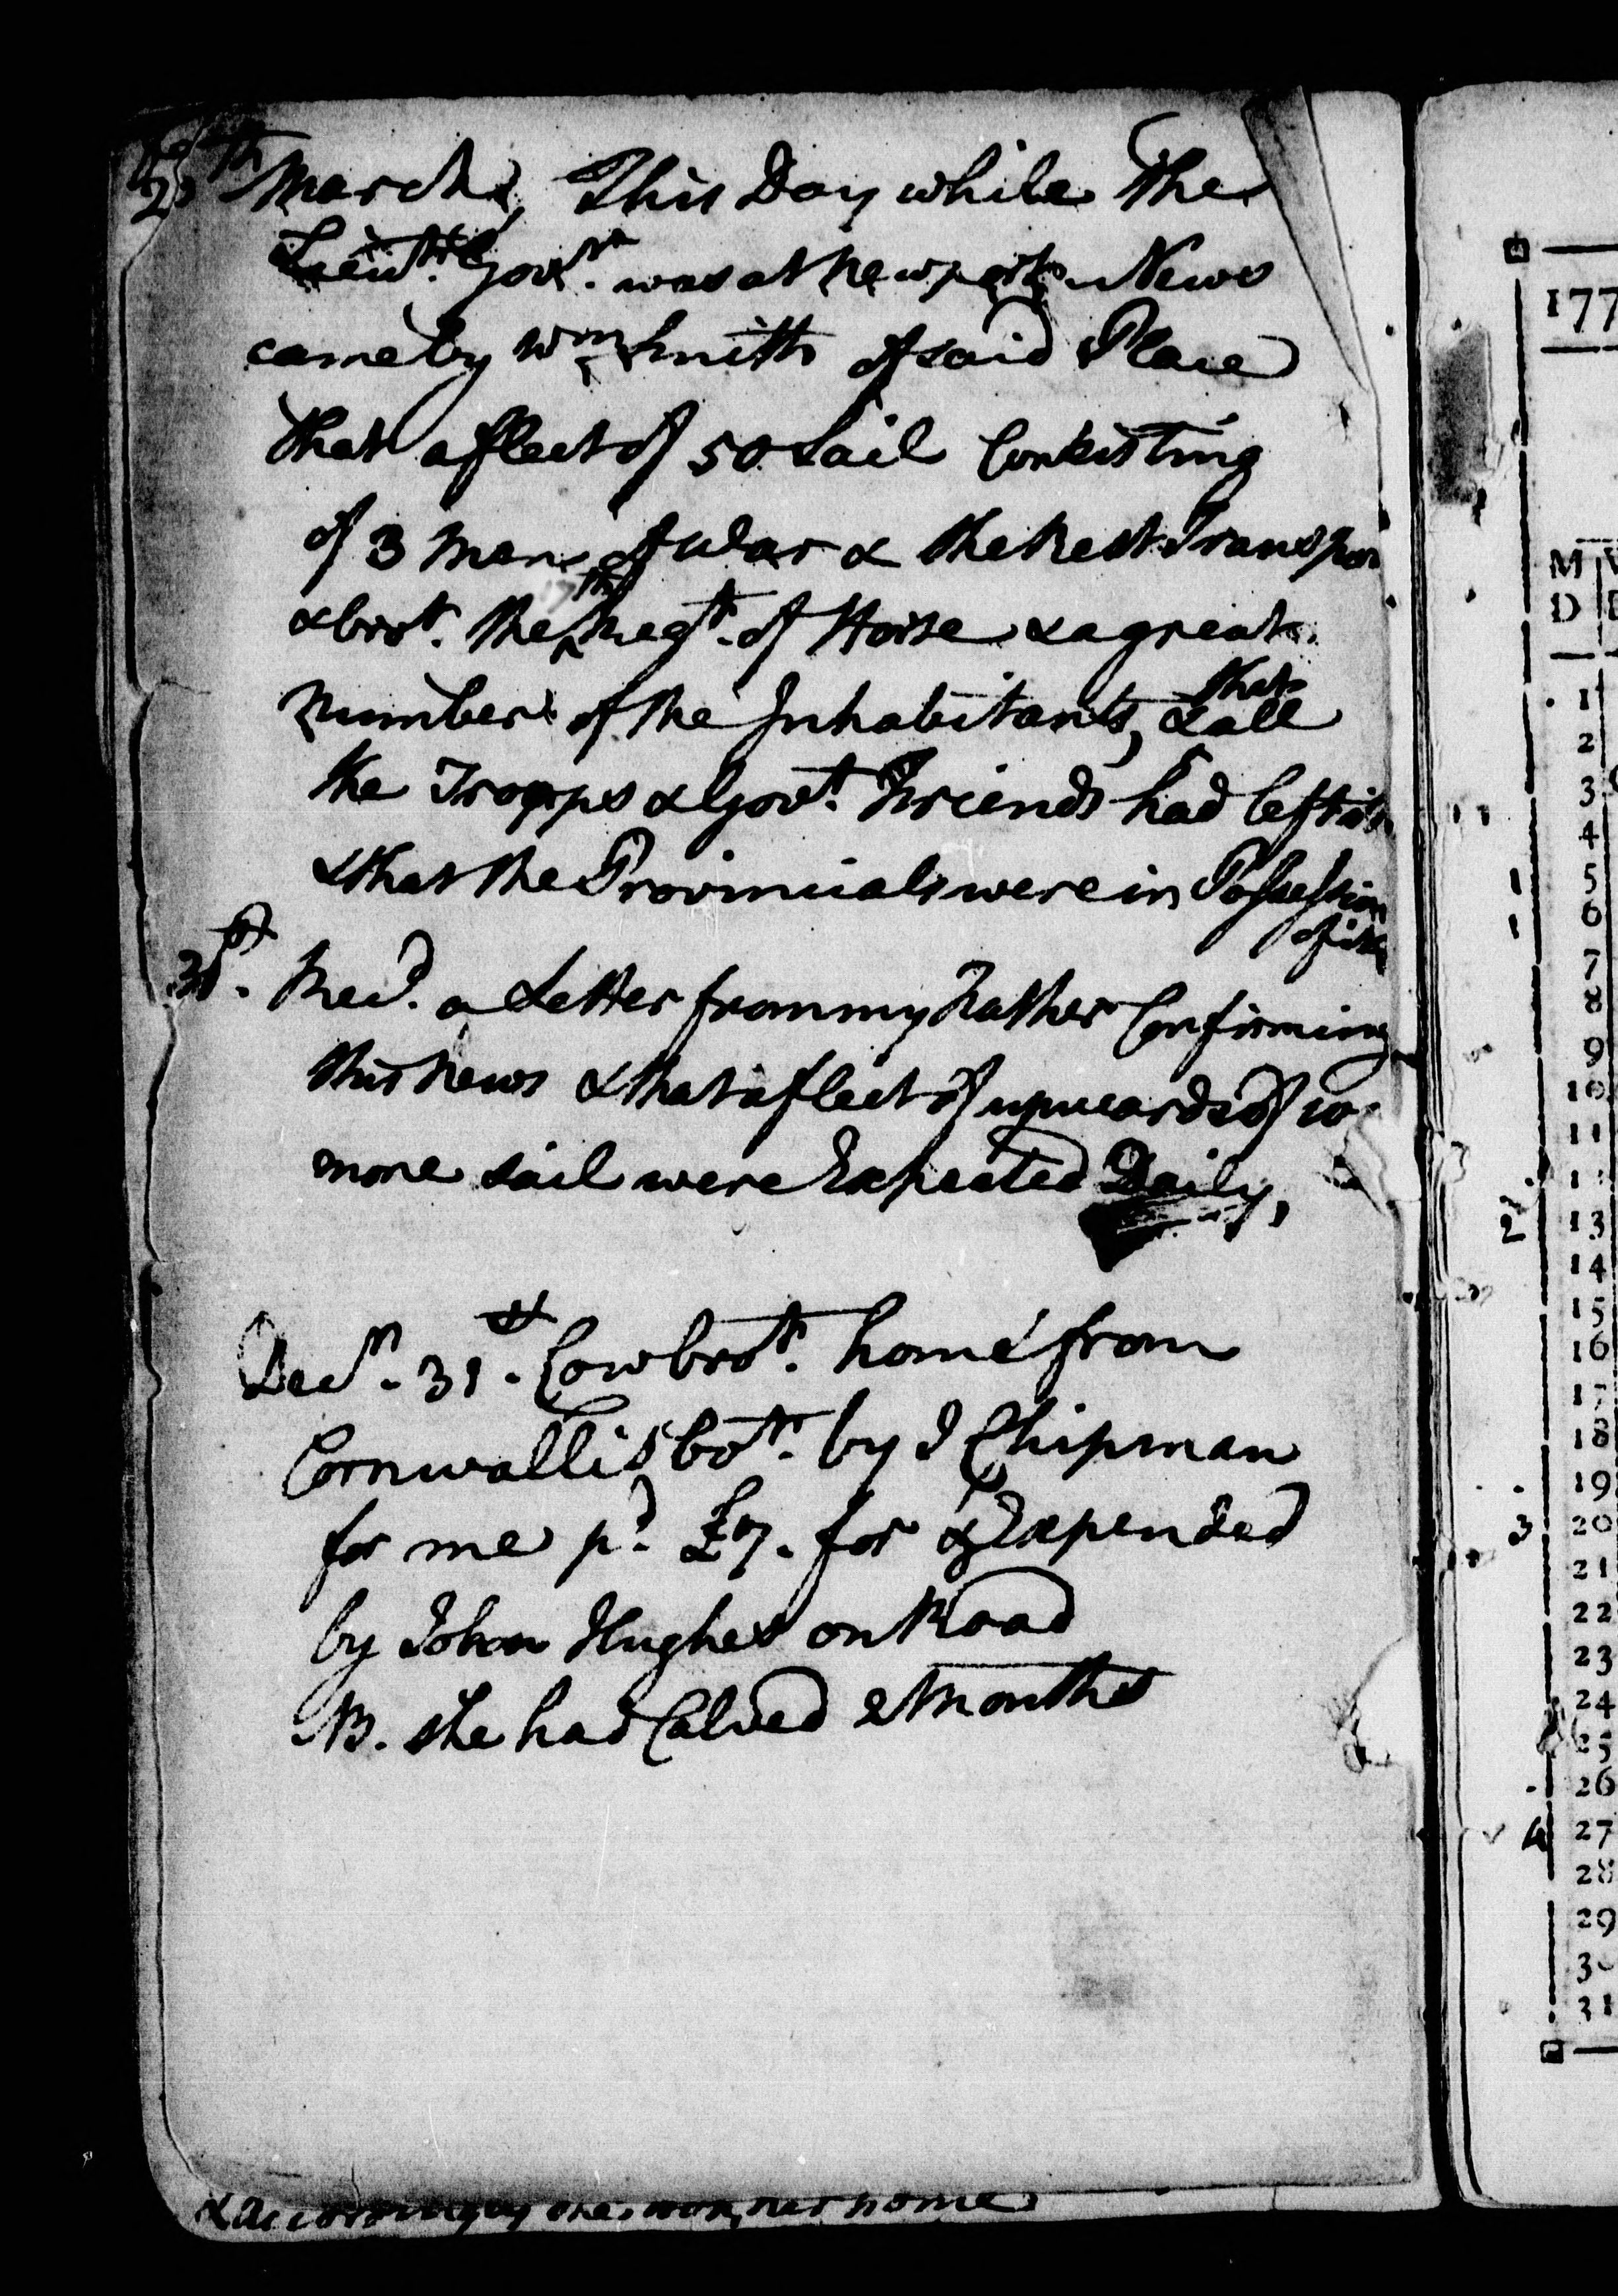 March, This Day while the
Lieut. Govr. was at Newport News
came by Wm. Smith of said Place
that a fleet of 50 Sail Consisting
of 3 Men of War & the Rest Transpor
17th
& brot. the Regt. of Horse & a great
that
number of the Inhabitants, & all
the Troops & Govt. Friends had left it
& that the Provincials were in Possession
of it
31st. Recd. a Letter from my Father Confirming
this News & that a fleet of upwards of
more sail were Expected Daily,
Decr. 31st. Cow brot. home from
Cornwallis bot. by J Chipman
for me pd. £7. for & Expended
by John Hughes on Road
NB. she had Calved 2 Months
& accordingly home
177
M
D
1
2
3
4
5
6
7
8
9
10
11
2 13
14
15
16
17
18
19
3 20
21
22
23
24
25
26
4 27
28
29
30
31